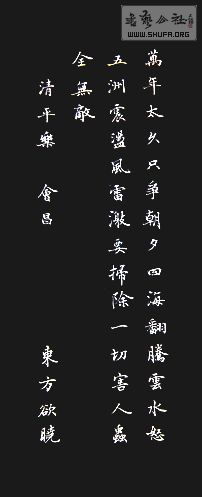 書藝公社
WWW.SHUFA.ORG
萬年太久只爭朝夕四海翻騰雲水怒
五洲震盪風雷激要掃除一切害人蟲
全無敵
清平樂 會昌 東方欲曉